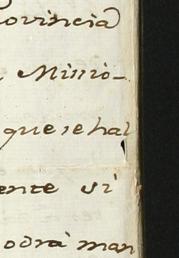 ovincia
Missio-
que se hal
ente si
odrà man